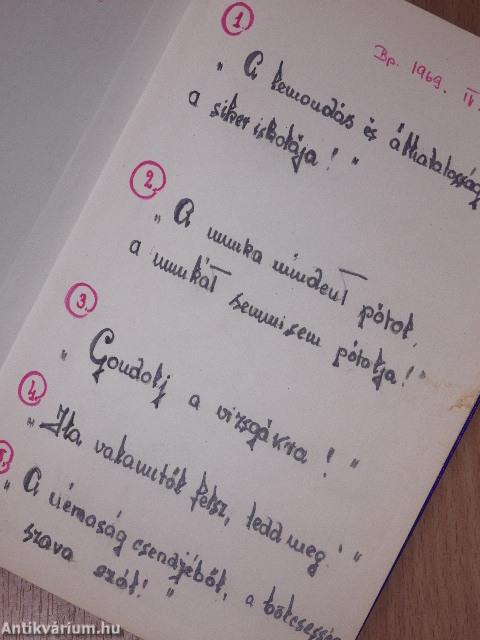 Bp. 1969. IV.
1.
"A lemondás és állhatatosság
a siker iskolája!"
2.
"A munka mindent pótol,
a munkát semmisem pótolja!"
3.
"Gondolj a vizsgákra!"
4.
"Ha valamitől félsz, tedd meg!"
5.
"A némaság csendjéből, a bölcsesség
szava szól!"
Antikvárium.hu